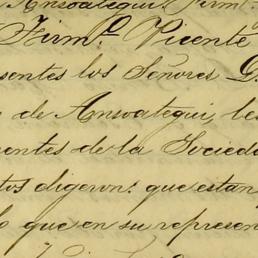 Ansoategui. Firmº.
Firmº. Vicente
sentes los Señores D.
de Ansoategui, les
nentes de la Socieda
tos digeron: que estan
que en su represen